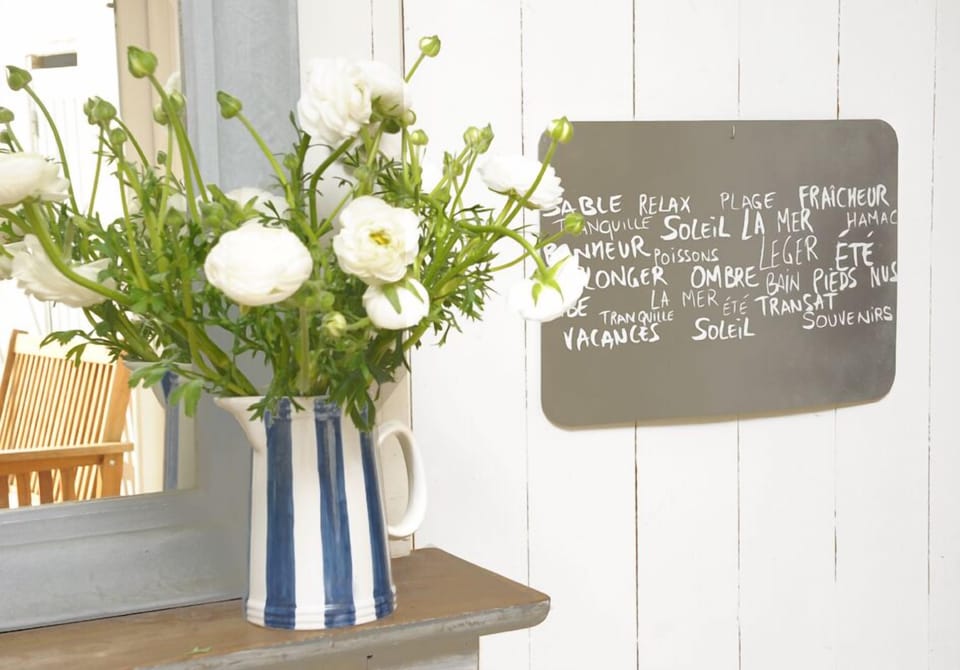 SABLE RELAX PLAGE FRAÎCHEUR
TRANQUILLE SOLEIL LA MER HAMAC
BONHEUR POISSONS LEGER ÉTÉ
PLONGER OMBRE BAIN PIEDS NUS
LA MER ÉTÉ TRANSAT
TRANQUILLE SOUVENIRS
VACANCES SOLEIL